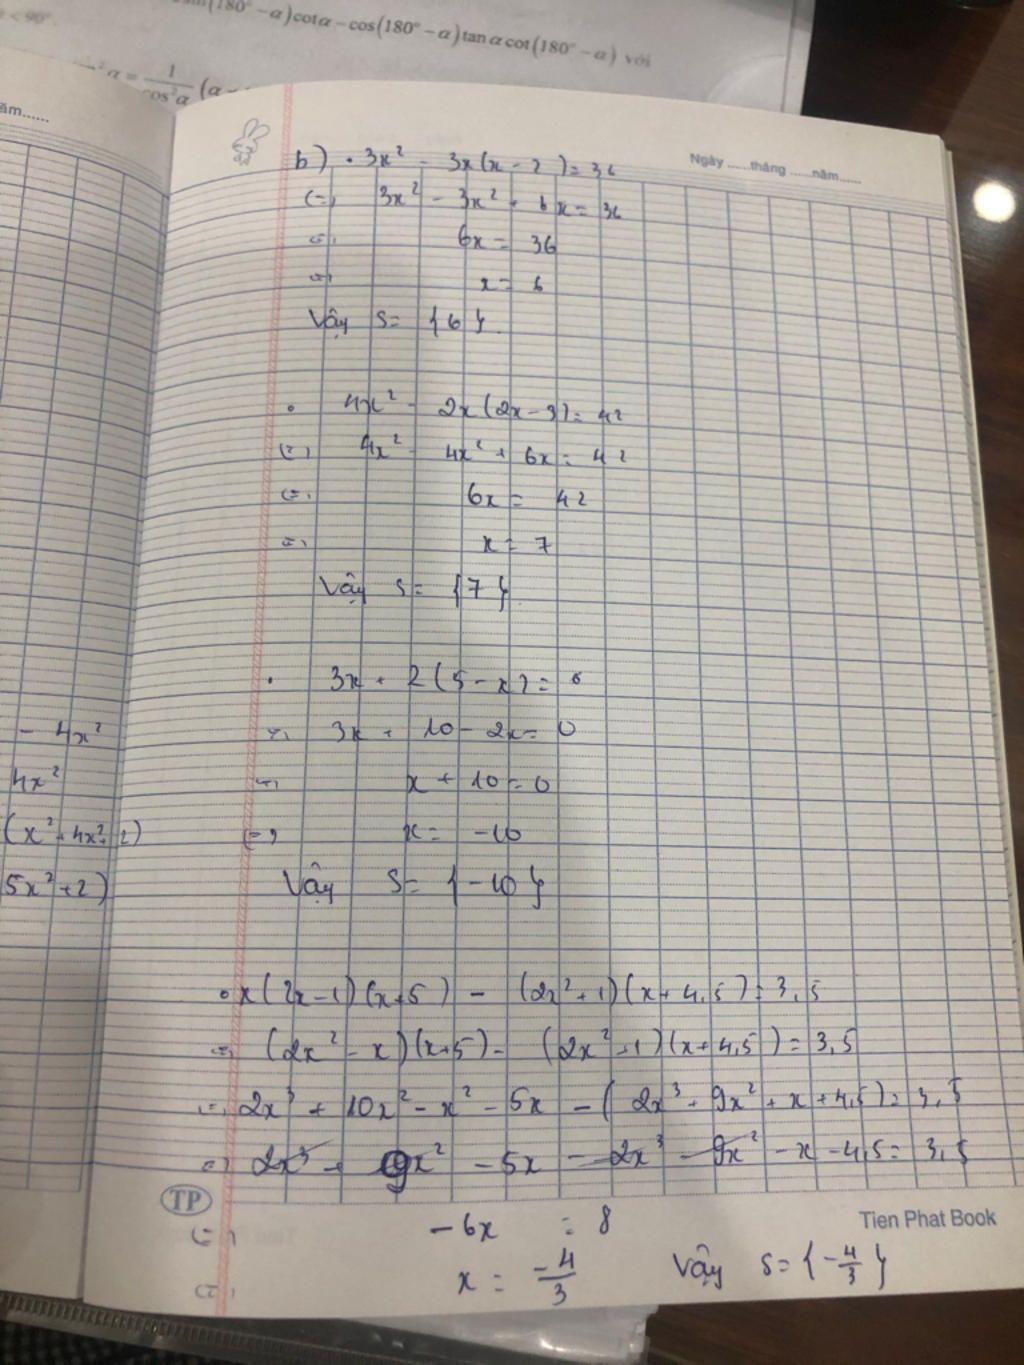 (180° − α)cotα − cos(180° − α)tanαcot(180° − α) với
< 90°.
α = 1/cos²α (α
năm......
Ngày ......tháng ......năm......
b) • 3x² - 3x(x - 2) = 36
(=) 3x² - 3x² + 6x = 36
(=) 6x = 36
(=) x = 6
Vậy S = {6}.
• 4x² - 2x(2x - 3) = 42
(=) 4x² - 4x² + 6x = 42
(=) 6x = 42
(=) x = 7
Vậy S = {7}.
• 3x + 2(5 - x) = 0
(=) 3x + 10 - 2x = 0
(=) x + 10 = 0
(=) x = -10
Vậy S = {-10}
- 4x²
4x²
(x² + 4x² + 2)
5x² + 2)
• x(2x-1)(x+5) - (2x²+1)(x+4,5) = 3,5
(=) (2x² - x)(x+5) - (2x²+1)(x+4,5) = 3,5
(=) 2x³ + 10x² - x² - 5x - (2x³ + 9x² + x + 4,5) = 3,5
(=) 2x³ + 9x² - 5x - 2x³ - 9x² - x - 4,5 = 3,5
TP
Tien Phat Book
(=) -6x = 8
(=) x = -4/3 Vậy S = {-4/3}